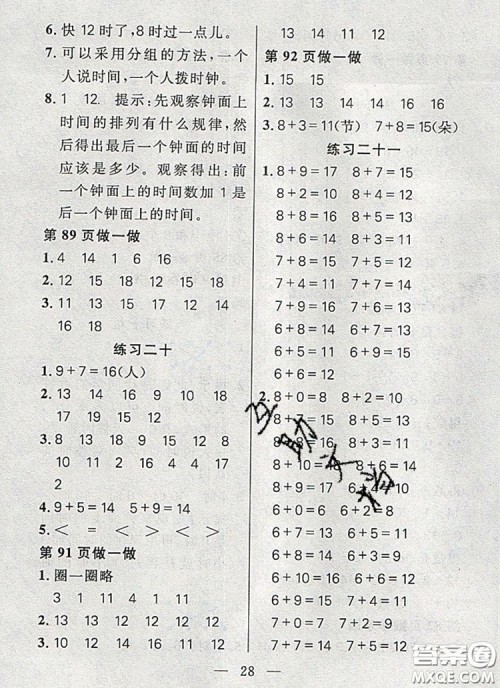 6. 快 12 时了，8 时过一点儿。
7. 可以采用分组的方法，一个
人说时间，一个人拨时钟。
8. 1 12. 提示：先观察钟面上
时间的排列有什么规律，然
后得出最后一个钟面的时间
应该是多少。观察得出：前一
个钟面上的时间数加 1 是
后一个钟面上的时间。
第 89 页做一做
1. 4 14 1 6 16
2. 12 15 18 12 15 18
3. 11 13 15 17 12 14
16 18
练习二十
1. 9+7=16(人)
2. 13 17 16 14 11 16
17 19 15 12
3. 18 13 18 9 18 12
17 11 4 11 16 12
2
4. 9+5=14 9+5=14
5. < = < < >
第 91 页做一做
1. 圈一圈略
3 1 11 4 1 11
2. 13 17 11 15
3. 10 12 11 12 15 16
13 14 15 11 12
第 92 页做一做
1. 15 15
2. 13 13 14 14 16 16
3. 8+3=11(节) 7+8=15(朵)
练习二十一
1. 8+9=17 8+7=15
8+8=16 8+6=14
8+4=12 8+5=13
7+9=16 8+3=11
7+8=15 7+7=14
7+5=12 7+6=13
6+9=15 7+4=11
6+7=13 6+8=14
6+5=11 6+6=12
2. 8+0=8 8+2=10
8+7=15 8+8=16
8+4=12 8+5=13
8+10=18 8+6=14
6+10=16 6+4=10
6+0=6 6+2=8
6+5=11 6+7=13
6+6=12 6+3=9
7+2=9 7+0=7
7+6=13 7+3=10
7+10=17 7+4=11
互助文档
28
答案圈
MXQE.COM